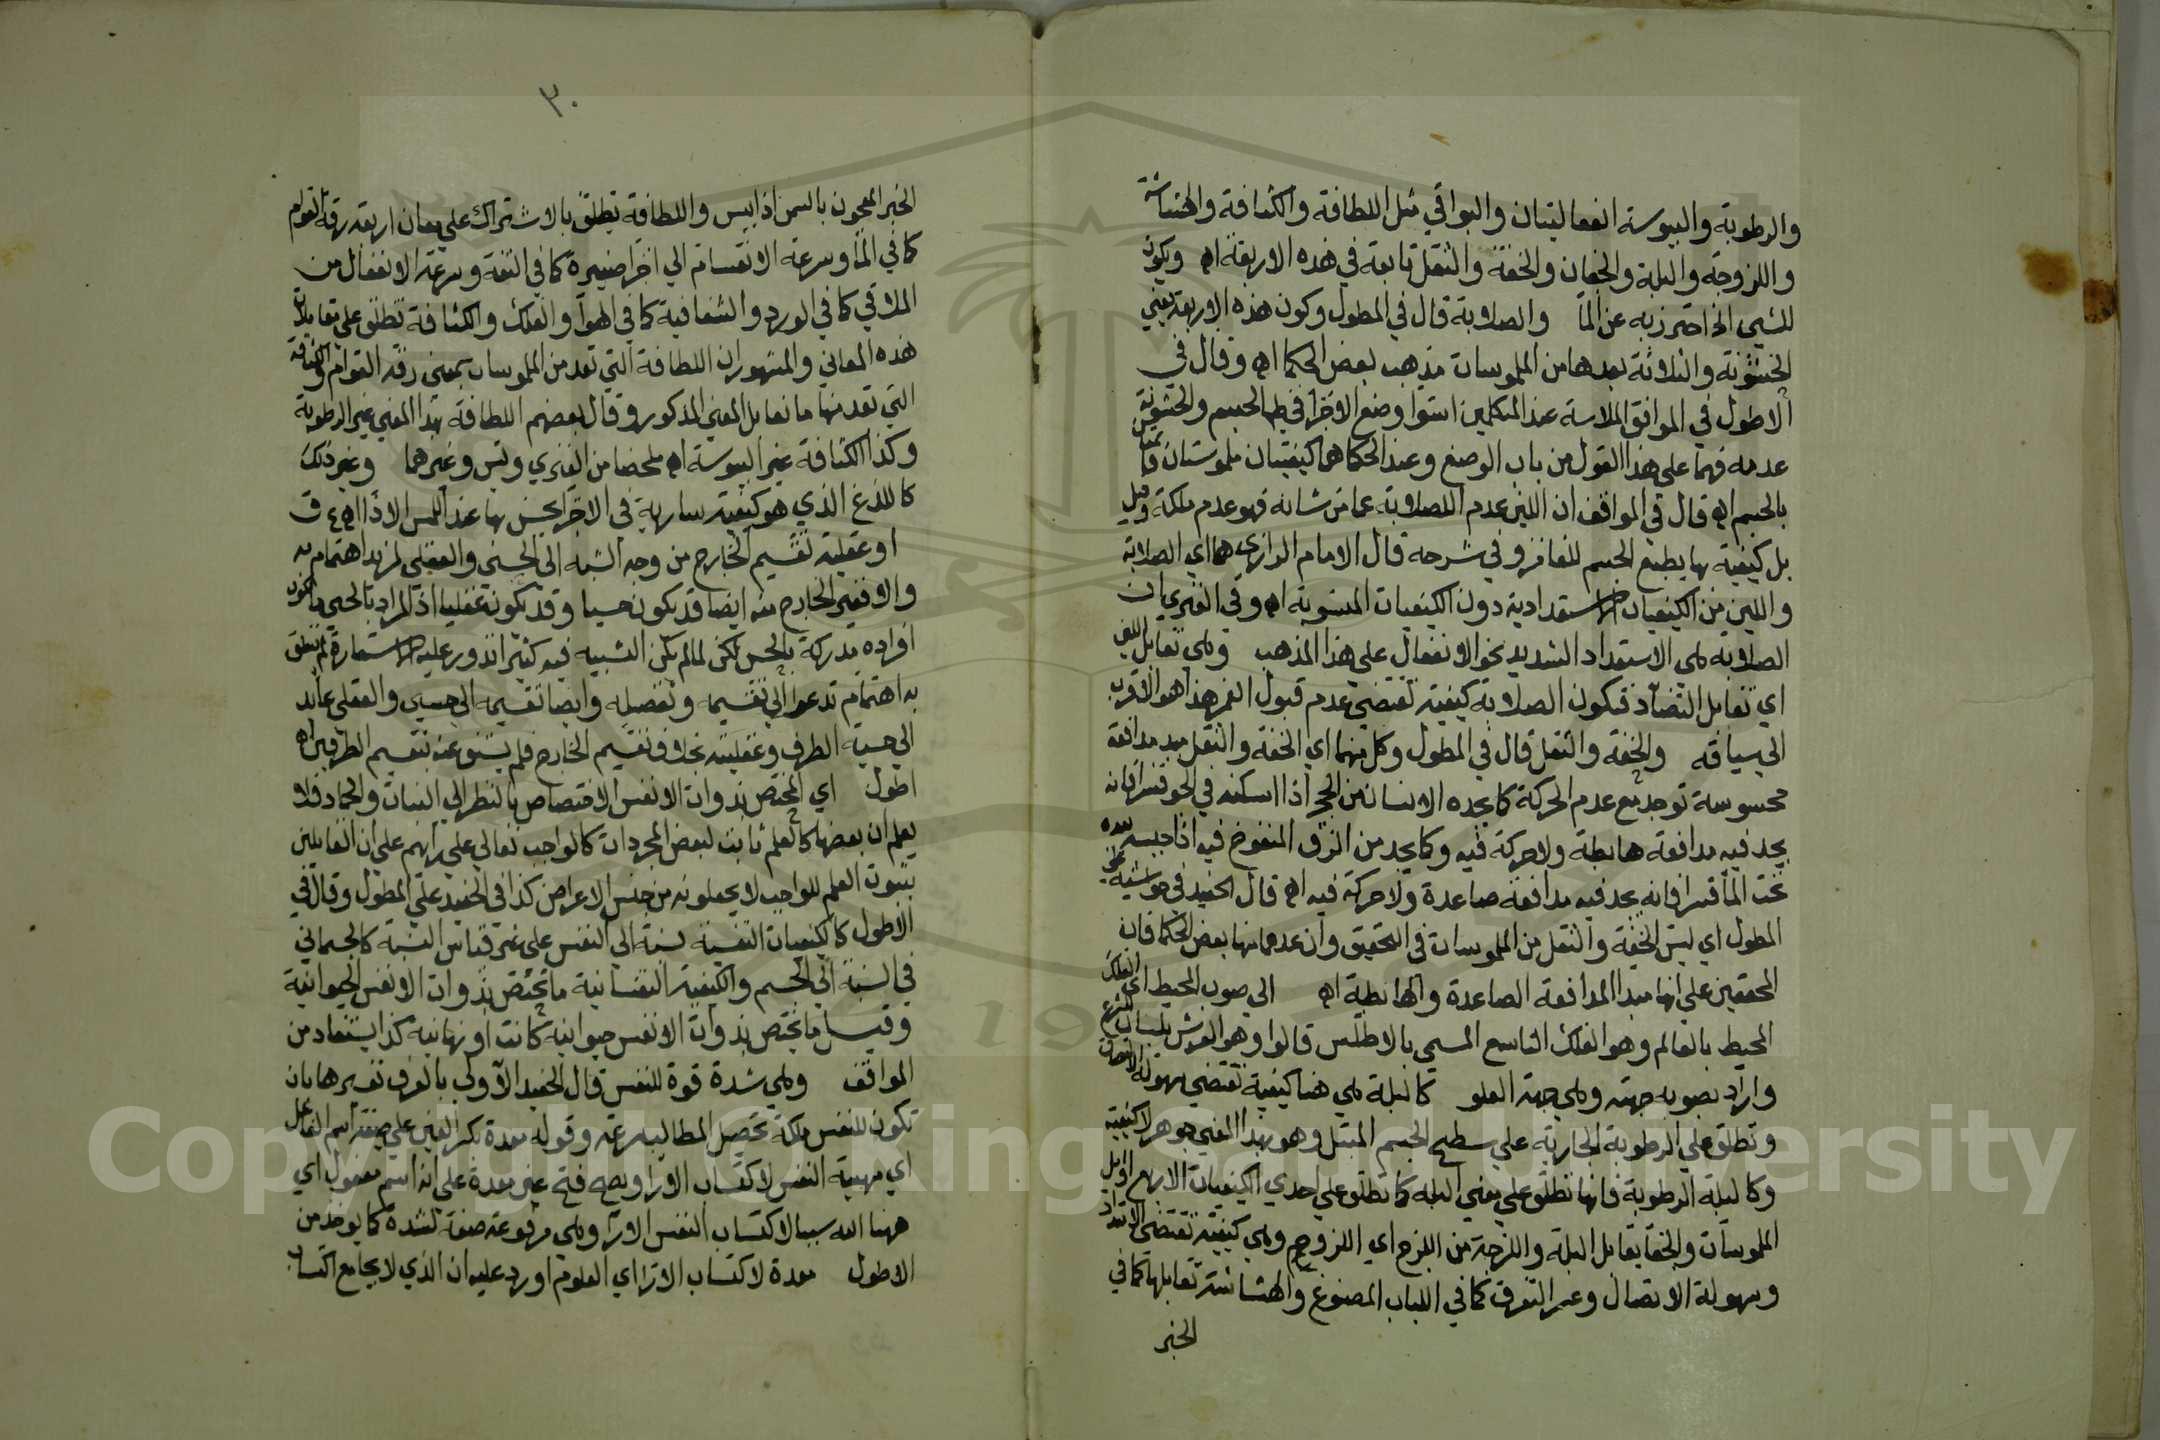 والرطوبة واليبوسة انفعاليتان والبواقي مثل اللطافة والكثافة والهشاشة
واللزوجة والبلة والجفاف والخفة والثقل تابعة في هذه الاربعة اه ويكون
للشيء الخ احترز به عن الما والصلابة قال في المطول وكون هذه الاربعة يعني
الخشونة والثلاثة بعدها من الملموسات مذهب بعض الحكما اه وقال في
الاطول في المواقف الملاسة عند المتكلمين استوا وضع الاجزا في ظاهر الجسم والخشونة
عدمه فهما على هذا القول من باب الوضع وعند الحكما هما كيفيتان ملموستان قائمتان
بالجسم اه قال في المواقف ان اللين عدم الصلابة عما من شانه فهو عدم ملكة وقيل
بل كيفية بها يطيع الجسم للغامز وفي شرحه قال الامام الرازي هما اي الصلابة
واللين من الكيفيات الاستعدادية دون الكيفيات الملموسة اه وفي الفنري ان
الصلابة هي الاستعداد الشديد نحو الانفعال على هذا المذهب وهي تقابل اللين
اي تقابل التضاد فتكون الصلابة كيفية تقتضي عدم قبول الغمز هذا هو الاقرب
الى سياقه والخفة والثقل قال في المطول وكل منهما اي الخفة والثقل مبدا مدافعة
محسوسة توجد مع عدم الحركة كما يجده الانسان من الحجر اذا اسكنه في الجو قسرا فانه
يجد فيه مدافعة هابطة ولا حركة فيه وكما يجد من الزق المنفوخ فيه اذا حبسه بيده
تحت الما قسرا فانه يجد فيه مدافعة صاعدة ولا حركة فيه اه قال الحفيد في حواشيه على
المطول اي ليس الخفة والثقل من الملموسات في التحقيق وان عدهما منها بعض الحكما فان
المحققين على انها مبدا المدافعة الصاعدة والهابطة اه الى صوب المحيط اي الفلك
المحيط بالعالم وهو الفلك التاسع المسمى بالاطلس قالوا وهو العرش بلسان الشرع
واراد بصوبه جهته وهي جهة العلو كالبلة هي هنا كيفية تقتضي سهولة الالتصاق
وتطلق على الرطوبة الجارية على سطح الجسم المبتل وهو بهذا المعنى جوهر لا كيفية
وكالبلة الرطوبة فانها تطلق على معنى البلة كما تطلق على احدى الكيفيات الاربع اوايل
الملموسات والجفا يقابل البلة واللزجة من اللزج اي اللزوج وهي كيفية تقتضي الامتداد
وسهولة الاتصال وعسر التفرق كما في اللباب المصنوع والهشاشة تقابلها كما في
الخبز
٣٠
الخبز المعجون بالسمن اذا يبس واللطافة تطلق بالاشتراك على معان اربعة رقة القوام
كما في الما وسرعة الانقسام الى اجزا صغيرة كما في النفة وسرعة الانفعال من
الملاقي كما في الورد والشفافية كما في الهوا والفلك والكثافة تطلق على مقابلات
هذه المعاني والمشهور ان اللطافة التي تعد من الملموسات بمعنى رقة القوام والكثافة
التي تعد منها ما تقابل المعنى المذكور وقال بعضهم اللطافة بهذا المعنى عين الرطوبة
وكذا الكثافة عين اليبوسة اه ملخصا من الفنري ويس وغيرهما وغير ذلك
كاللذع الذي هو كيفية سارية في الاجزا يحس بها عند اللمس الاذا اه ع ق
او عقلية تقسيم الخارج من وجه الشبه الى الحسي والعقلي لمزيد اهتمام به
والا فغير الخارج منه ايضا قد يكون حسيا وقد يكون عقليا اذ المراد بالحسي ما تكون
افراده مدركة بالحس لكن لما لم يكن التشبيه فيه كثيرا تدور عليه الاستعارة لم يتعلق
به اهتمام تدعو الى تقسيمه وتفصيله وايضا تقسيمه الى حسي والعقلي عائد
الى حسية الطرف وعقليته بخلاف تقسيم الخارج فلم يستغن عنه بتقسيم الطرفين اه
اطول اي المختص بذوات الانفس الاختصاص بالنظر الى النبات والجماد فلا
يعلم ان بعضها كالعلم ثابت لبعض المجردات كالواجب تعالى على رايهم على ان القائلين
بثبوت العلم للواجب لا يجعلونه من جنس الاعراض كذا في الحفيد على المطول وقال في
الاطول كالكيفيات النفسية نسبة الى النفس على غير قياس النسبة كالجسماني
في النسبة الى الجسم والكيفية النفسانية ما تختص بذوات الانفس الحيوانية
وقيل ما تختص بذوات الانفس حيوانية كانت او نباتية كذا يستفاد من
المواقف وهي شدة قوة للنفس قال الحفيد الاولى بالعرف تفسيرها بان
تكون للنفس ملكة تحصيل المطالب بسرعة وقوله معدة بكسر العين على صيغة اسم الفاعل
اي مهيئة النفس لاكتساب الارا ويصح فتح عين معدة على انه اسم مفعول اي
هيئها الله سببا لاكتساب النفس الارا وهي مرفوعة صفة لشدة كما يوخذ من
الاطول معدة لاكتساب الارا اي العلوم اورد عليه ان الذي لا يجامع اكتساب